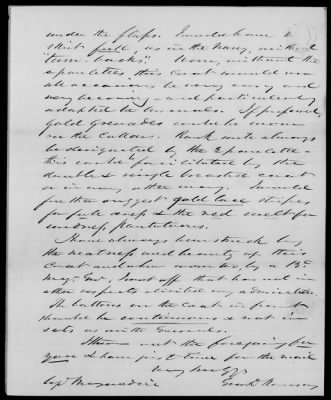 under the flaps. I would have a
skirt full, as in the Navy, without
"turn-backs." Worn, without the
epaulettes, this Coat would on
all occasions be very easy and
very becoming - and particularly
adapted to
If preferred,
Gold Grenades could be worn
on the Collars. Rank will always
be designated by the Epaulette
this could be substituted by the
double & single breasted coat
or in any other way. I would
further suggest gold lace stripes
for full dress & the red welt for
undress Pantaloons.
I have always been struck by
the neatness and beauty of this
Coat and when worn by a
Maj. Genl, that has not in
other respects elicited my admiration.
The buttons on the Coat in front
should be continuous & not in
sets as with Generals.
the foregoing for
you & have just time for the mail
Very truly yrs
Capt Maynadier
Geo. D. Ramsay